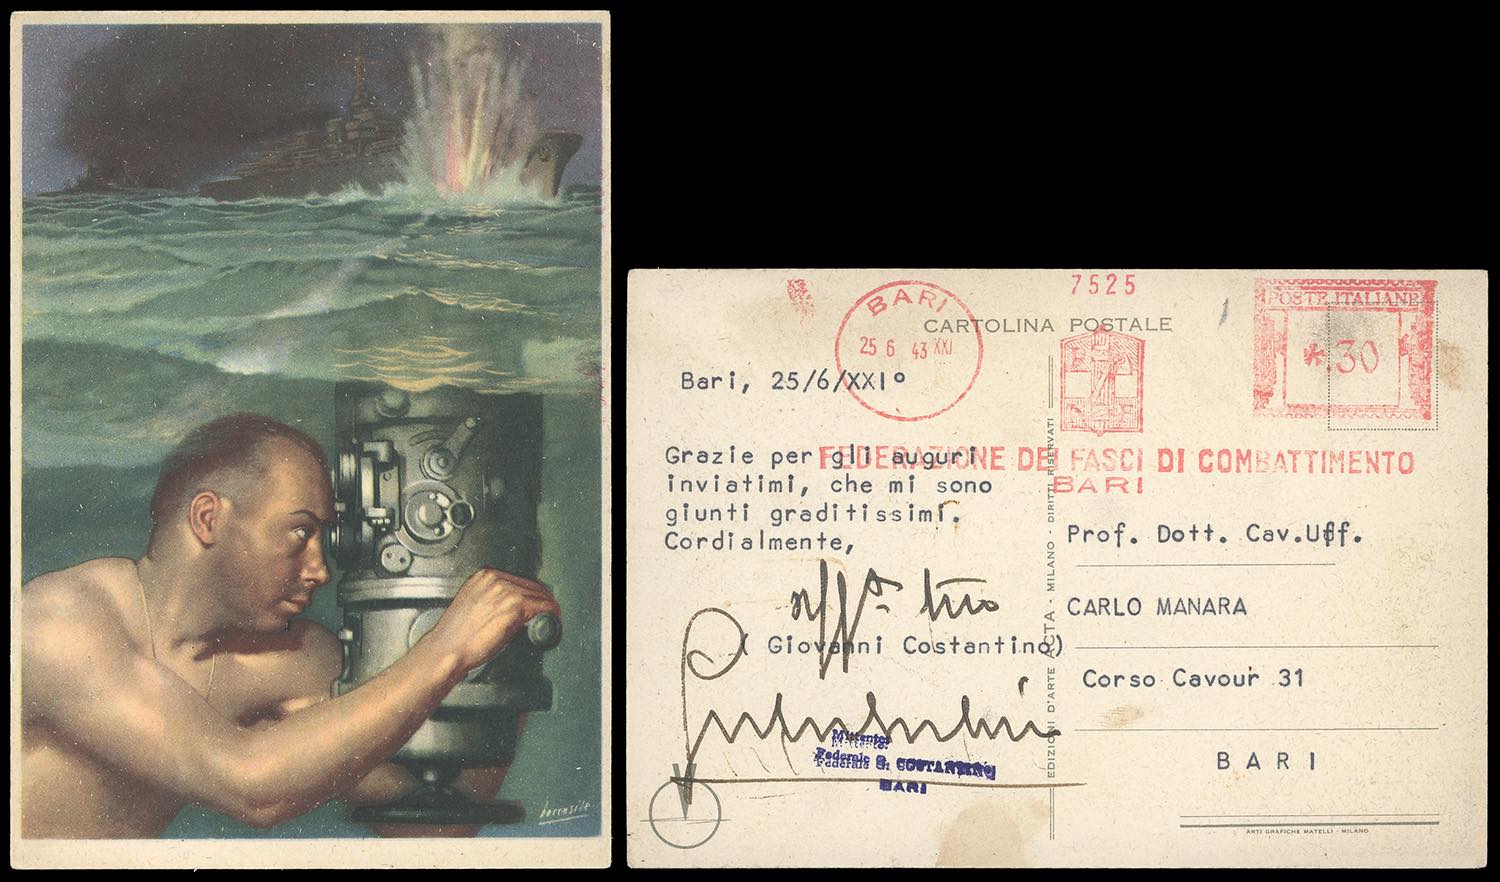 boccasile
7525
BARI
25 6 43 XXI
POSTE ITALIANE
*.30
CARTOLINA POSTALE
FEDERAZIONE DEI FASCI DI COMBATTIMENTO
BARI
Bari, 25/6/XXI°
Grazie per gli auguri
inviatimi, che mi sono
giunti graditissimi.
Cordialmente,
aff.mo tuo
( Giovanni Costantino)
Mittente:
Federale G. COSTANTINO
BARI
EDIZIONI D'ARTE ACTA - MILANO - DIRITTI RISERVATI
Prof. Dott. Cav.Uff.
CARLO MANARA
Corso Cavour 31
BARI
ARTI GRAFICHE MATELLI - MILANO